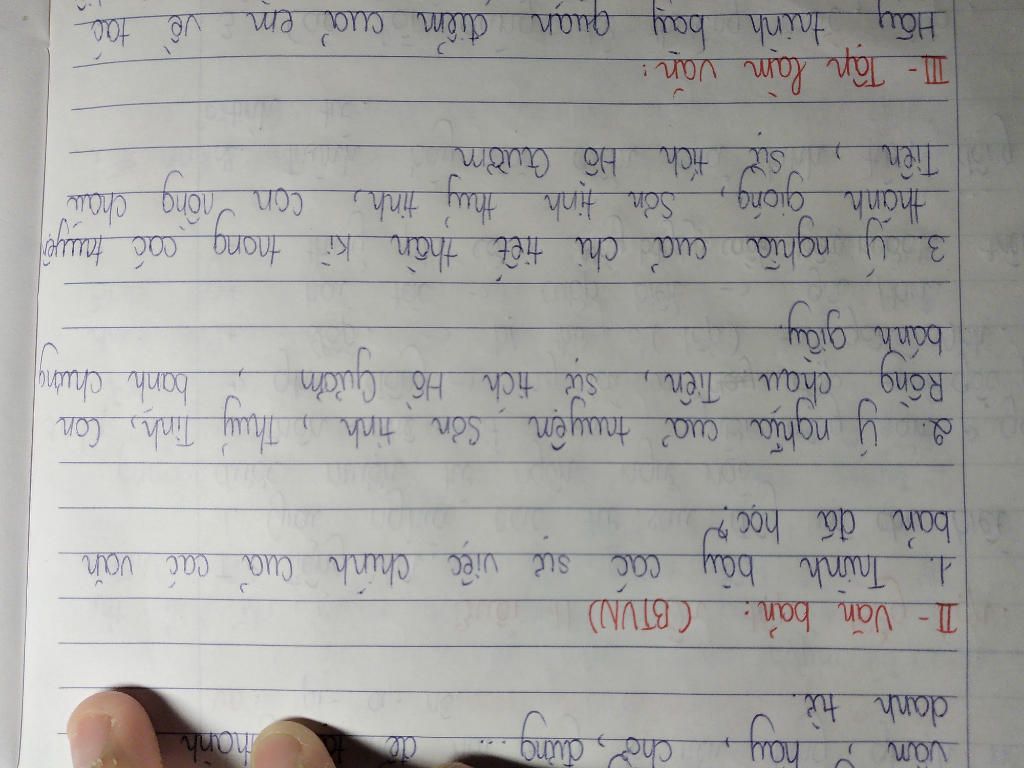 vẫn, hãy, chớ, đừng,... để
danh từ.
II - Văn bản: (BTVN)
1. Trình bày các sự việc chính của các văn
bản đã học?
2. Ý nghĩa của truyện Sơn tinh, Thủy Tinh, Con
Rồng cháu Tiên, sự tích Hồ Gươm, bánh chưng
bánh giầy.
3. Ý nghĩa của chi tiết thần kì trong các truyện
thánh gióng, Sơn tinh thủy tinh, con rồng cháu
Tiên, sự tích Hồ Gươm
III - Tập làm văn:
Hãy trình bày quan điểm của em về tác